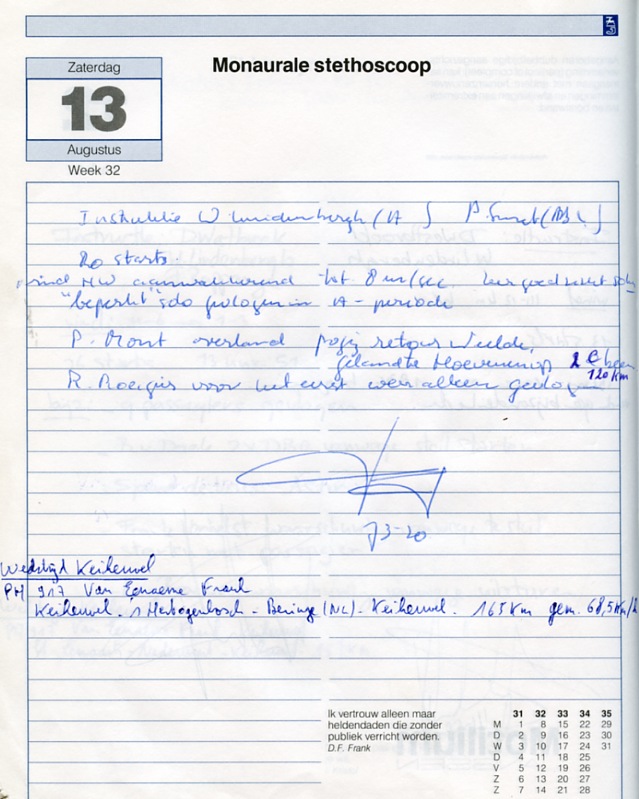 Zaterdag
13
Augustus
Week 32
Monaurale stethoscoop
Instruktie W
20 starts.
wind NW aanwakkerend tot 8 m/sec. zeer goed zicht
"beperkt" solo gevlogen in - periode
P. Mont overland poging retour Weelde,
gelandte Hoevenen op 2e been
120 km
R. voor het eerst weer alleen gevlogen
73-20
Wedstrijd Keiheuvel
PH 917 Van Frank
Keiheuvel - 's Hertogenbosch - Beringe (NL) - Keiheuvel. 165 km gem. 68,5 km/h
Ik vertrouw alleen maar
heldendaden die zonder
publiek verricht worden.
D.F. Frank
31 32 33 34 35
M 1 8 15 22 29
D 2 9 16 23 30
W 3 10 17 24 31
D 4 11 18 25
V 5 12 19 26
Z 6 13 20 27
Z 7 14 21 28